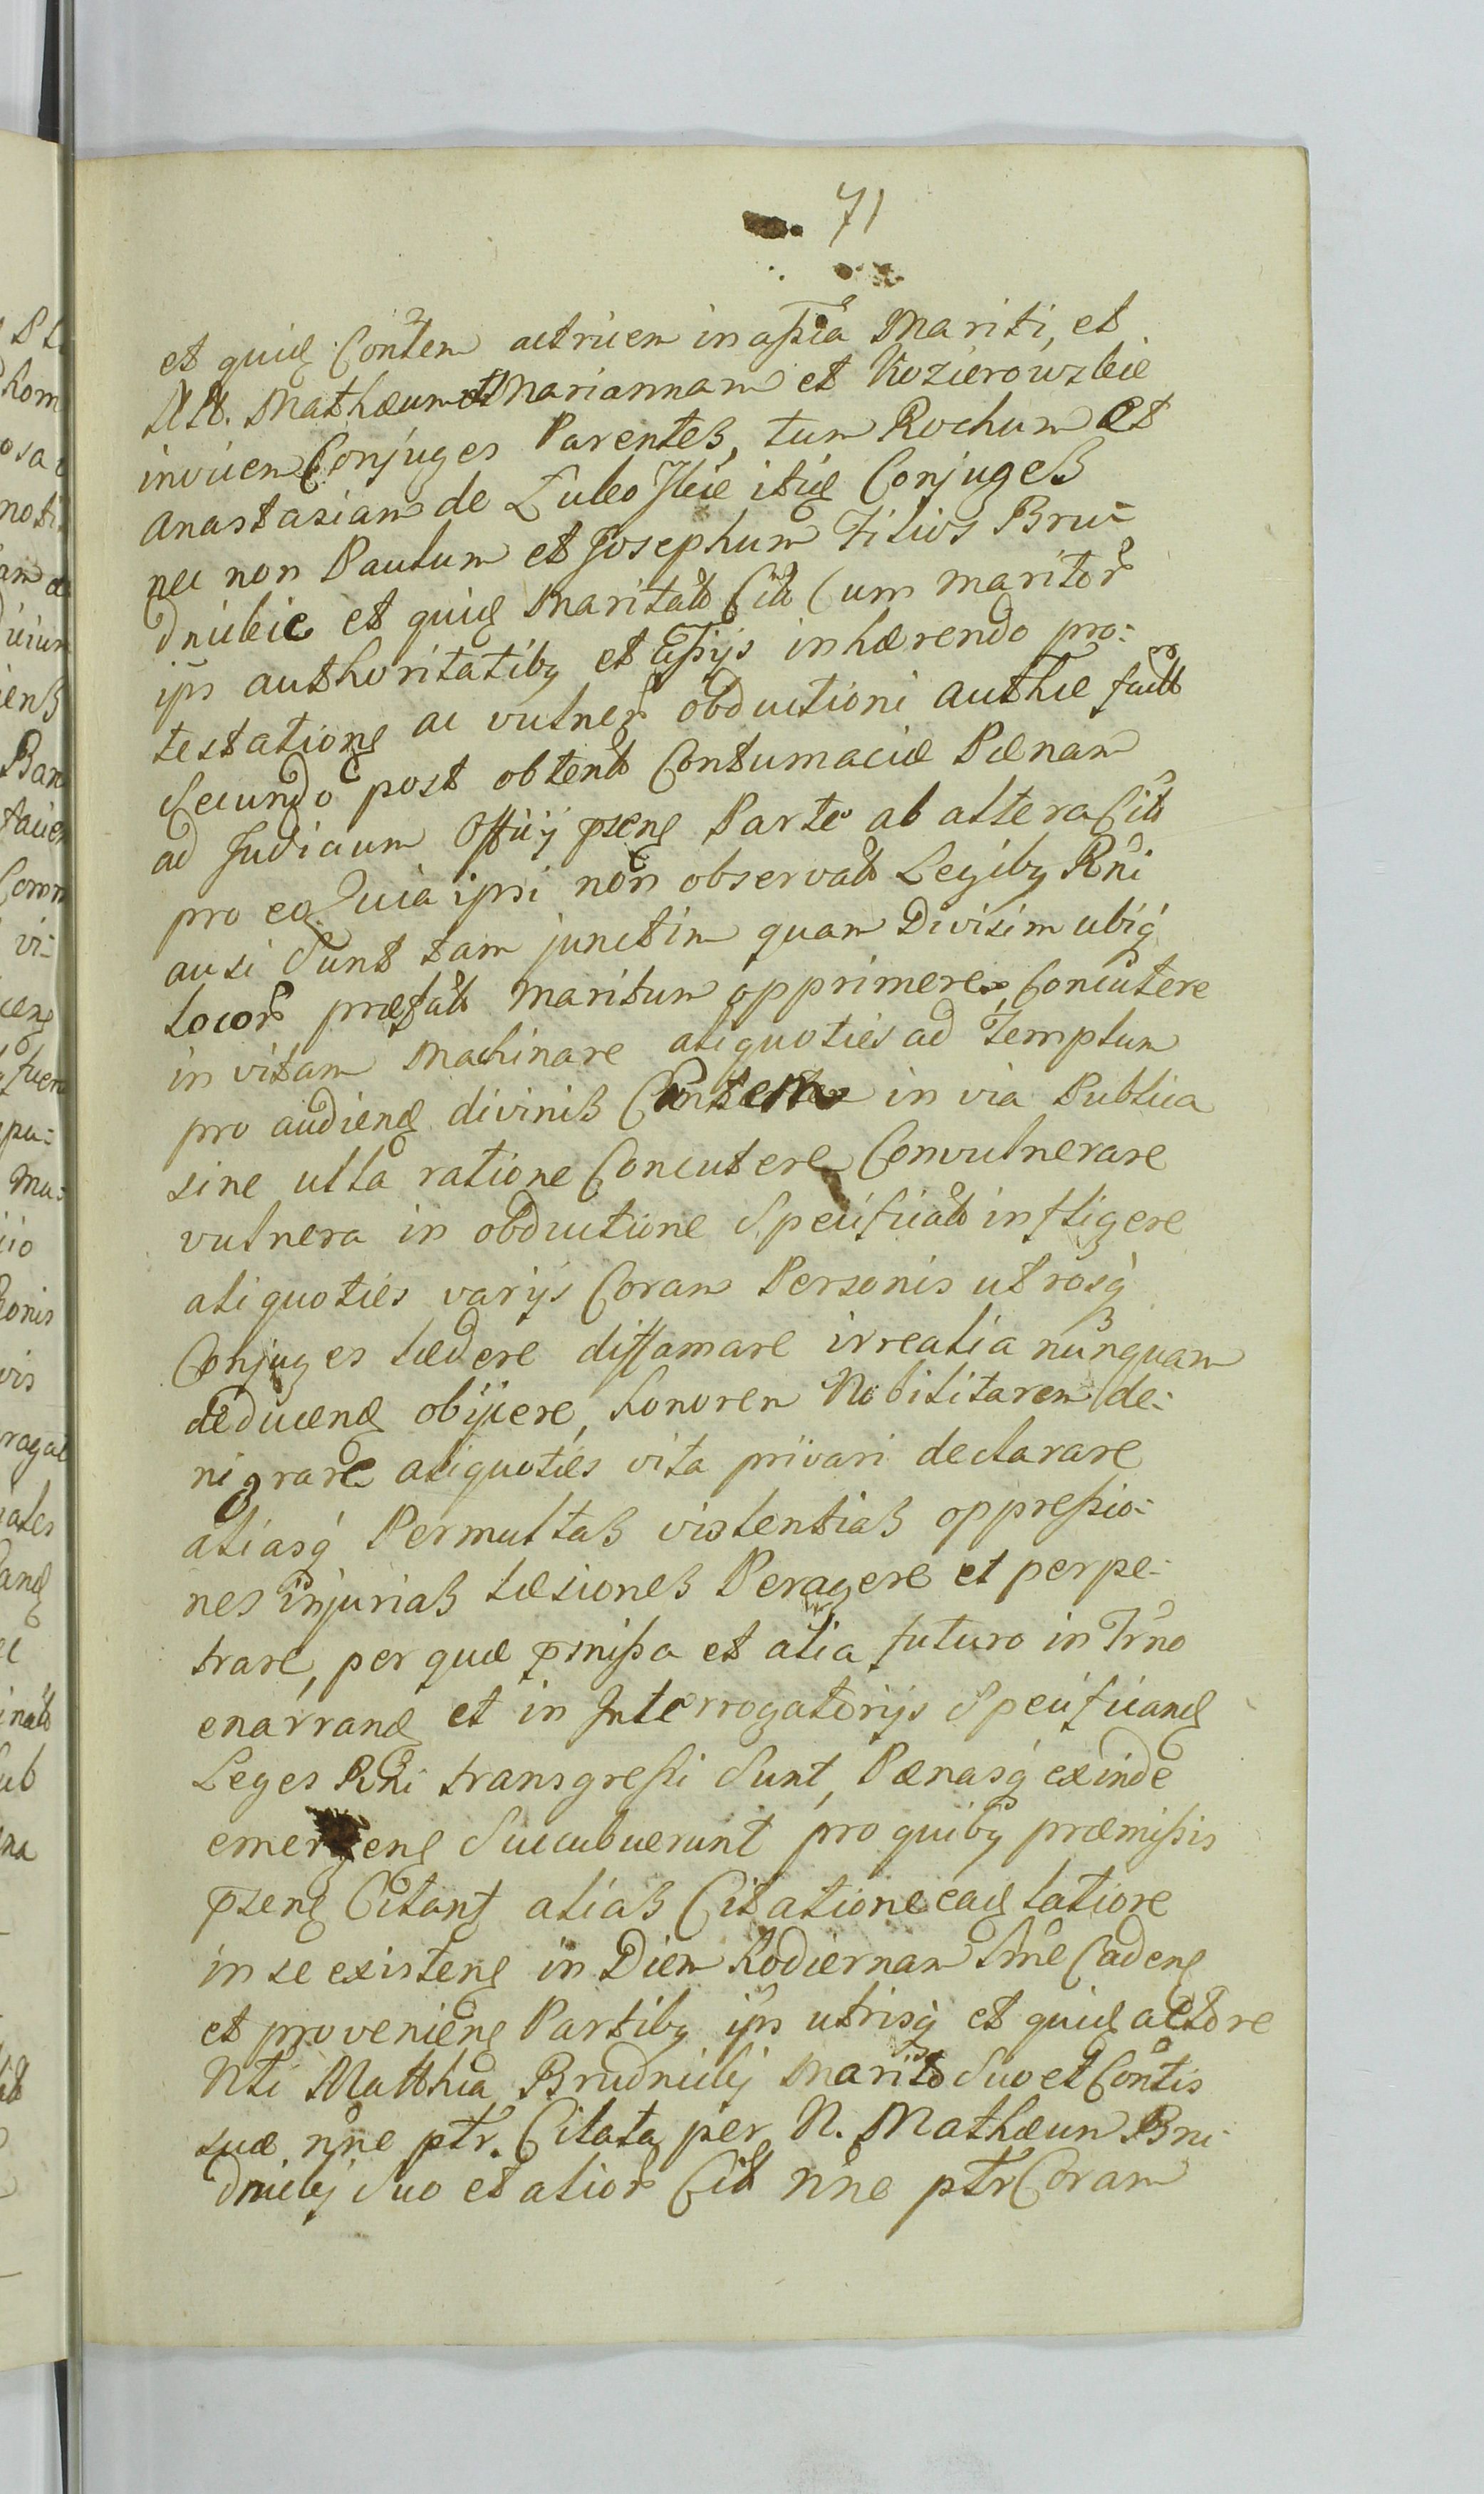 71
et quidē Conttem actricem in aßtia Mariti, et
NN. Mathæum et Mariannam et Kozierowzkie
invicem Conjuges Parentes, tum Rochum et
Anastasiam de Zuleo itidē Conjuges
nec non Paulum et Josephum Filios Bru-
dnickie et quidē Maritat Cit Cum Maritor
ipš authoritatibq et aßtijs inhærendo pro-
testatione ac vulner obductioni authce factt
Secundo post obtent Contumaciæ Pænam
ad Judicium Officij pseng Parte ab altera Cit
pro eo Quia ipsi non observatt Legibq Rñi
ausi Sunt tam junctim quam Divisim ubiq
locor præfatt Maritum opprimere, Concutere
in vitam Machinare aliquoties ad Templum
pro audieng divinis in via Publica
sine ulla ratione Concutere Convulnerare
vulnera in obductione Specificatt infligere
aliquoties varijs Coram Personis utrosq
Conjuges lædere diffamare irrealia nunquam
deduceng obijcere, honorem Nobilitarem de-
nigrare aliquoties vita privari declarare
aliasq Permultas violentias oppreßio-
nes injurias læsiones Peragere et perpe-
trare, per quæ pmißa et alia futuro in Trño
enarrang et in Interrogatorijs Specificang
Leges Rñi transgreßi Sunt, Pænasq exinde
emergeng Succubuerunt pro quibq præmißis
pseng Citant alias Citatione eadē latiore
in se existeng in Diem hodiernam Cadeng
et provenieng Partibq ipš utrisq et quidē actore
Nti Matthia Brudnicky Marito Suo et Conttis
suæ nñe ptr. Citata per N. Mathæum Bru-
dnicky Suo et alior Citt nñe ptr Coram